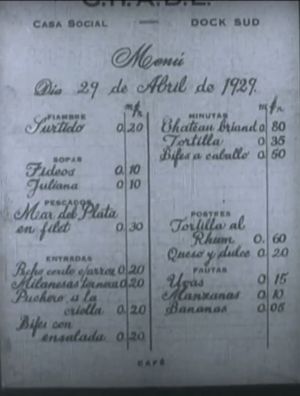 C.H.A.D.E.
CASA SOCIAL — DOCK SUD
Menú
Día 29 de Abril de 1929.
m/n.
FIAMBRE
Surtido 0.20
SOPAS
Fideos 0.10
Juliana 0.10
PESCADOS
Mar del Plata
en filet 0.30
ENTRADAS
cerdo c/arroz 0.20
Milanesas ternera 0.20
Puchero a la
criolla 0.20
Bifes con
ensalada 0.20
m/n.
MINUTAS
Chateaubriand 0.80
Tortilla 0.35
Bifes a caballo 0.50
POSTRES
Tortilla al
Rhum 0.60
Queso y dulce 0.20
FRUTAS
Uvas 0.15
Manzanas 0.10
Bananas 0.05
CAFÉ